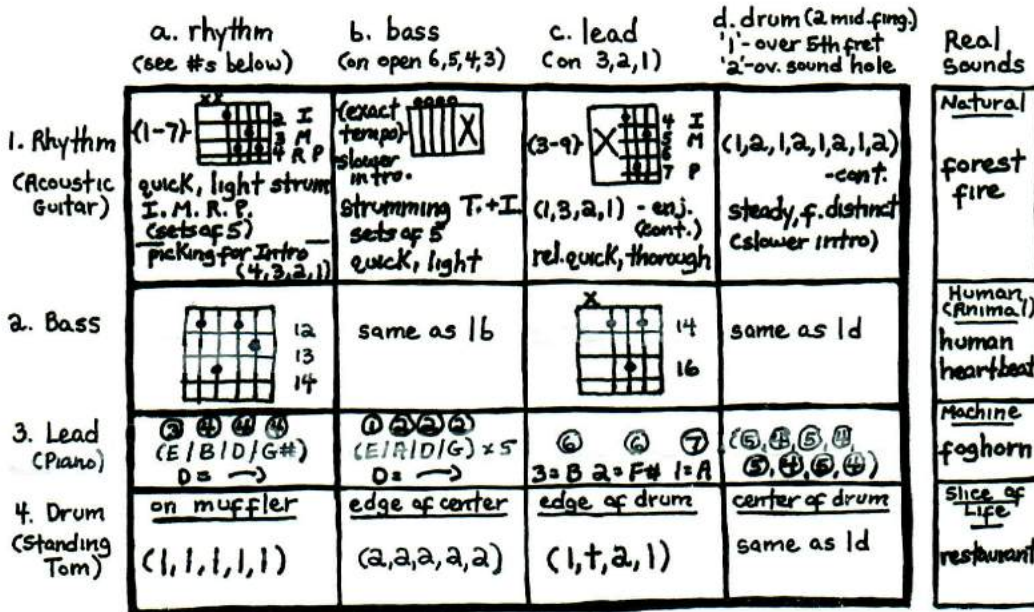 a. rhythm
(see #s below)
b. bass
(on open 6,5,4,3)
c. lead
(on 3,2,1)
d. drum (2 mid. fing.)
'1'- over 5th fret
'2'-ov. sound hole
Real
Sounds
1. Rhythm
(Acoustic
Guitar)
xx
(1-7)
2 I
3 M
4 R P
quick, light strum
I. M. R. P.
(sets of 5)
picking for Intro
(4,3,2,1)
(exact
tempo)
slower
intro.
X
strumming T.+I.
sets of 5
quick, light
(3-9)
X
4 I
5 M
6
7 P
(1,3,2,1) - enj.
(cont.)
rel. quick, thorough
(1,2,1,2,1,2,1,2)
-cont.
steady, f. distinct
(slower intro)
Natural
forest
fire
2. Bass
12
13
14
same as 1b
X
14
16
same as 1d
Human
(Animal)
human
heartbeat
3. Lead
(Piano)
3 4 4 4
(E/B/D/G#)
D= →
1 2 2 2
(E/A/D/G) x 5
D= →
6 6 7
3=B 2=F# 1=A
(5,4,5,4,
5,4,5,4)
Machine
foghorn
4. Drum
(Standing
Tom)
on muffler
(1,1,1,1,1)
edge of center
(2,2,2,2,2)
edge of drum
(1,+,2,1)
center of drum
same as 1d
Slice of
Life
restaurant